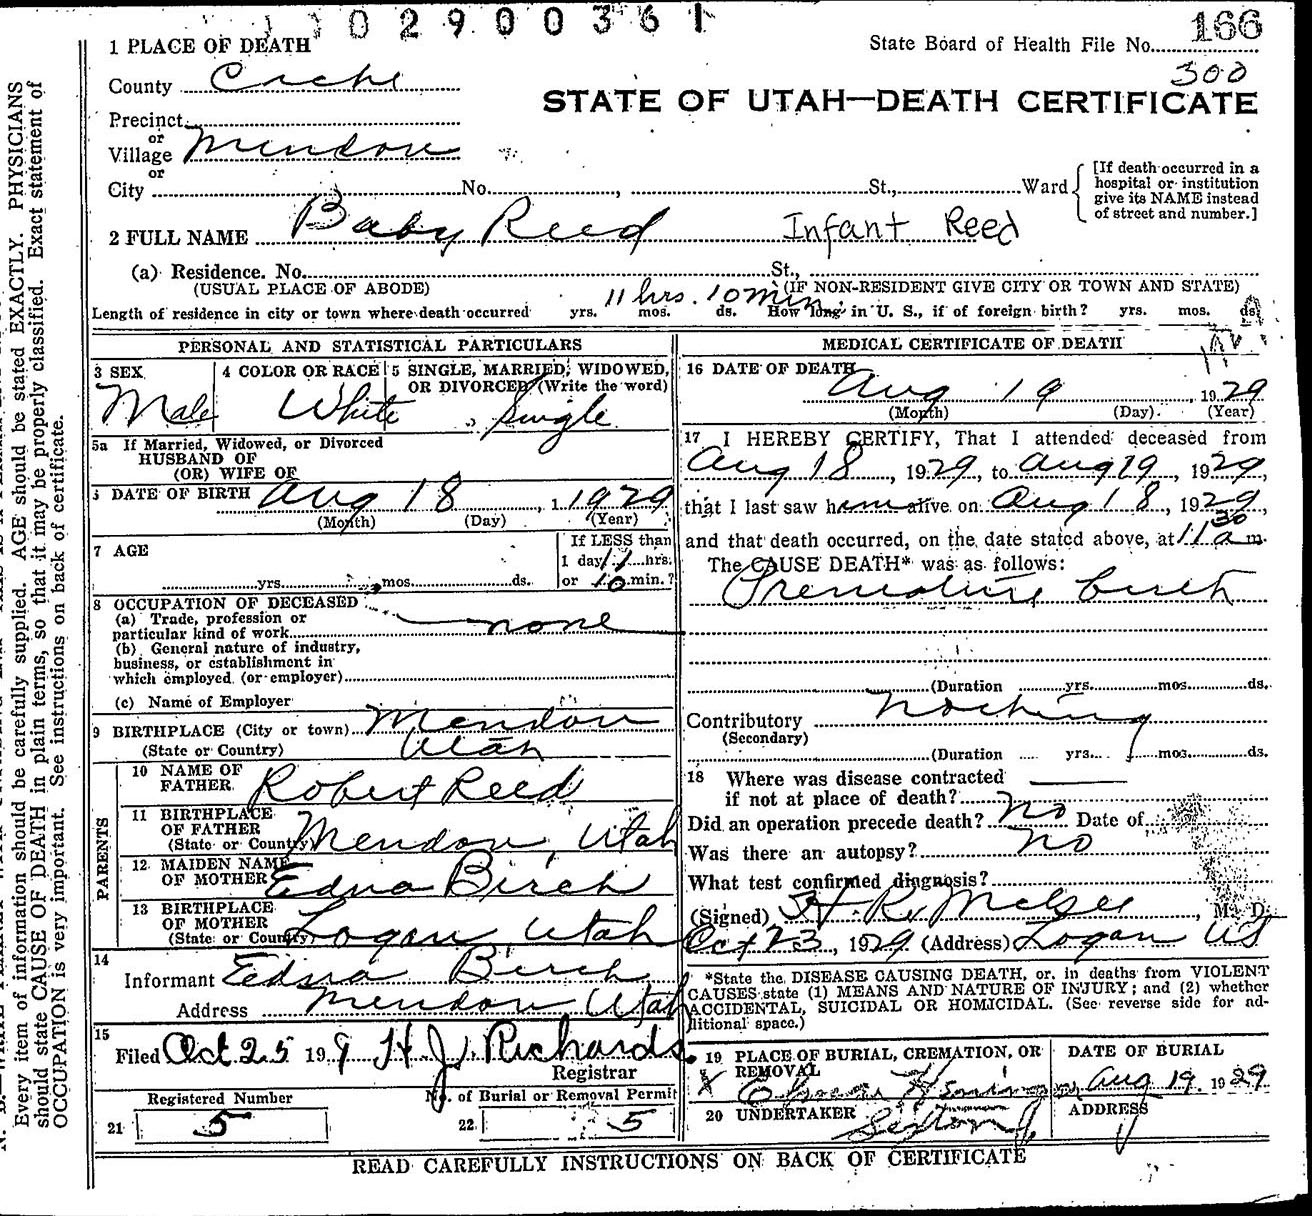 02900361
166
1 PLACE OF DEATH
State Board of Health File No.
300
County Cache
STATE OF UTAH—DEATH CERTIFICATE
Precinct
or
Village Mendon
or
City No. , St., Ward
[If death occurred in a
hospital or institution
give its NAME instead
of street and number.]
2 FULL NAME Baby Reed Infant Reed
(a) Residence. No. St.,
(USUAL PLACE OF ABODE) (IF NON-RESIDENT GIVE CITY OR TOWN AND STATE)
11 hrs. 10 min
Length of residence in city or town where death occurred yrs. mos. ds. How long in U. S., if of foreign birth? yrs. mos. ds.
PERSONAL AND STATISTICAL PARTICULARS
3 SEX 4 COLOR OR RACE 5 SINGLE, MARRIED, WIDOWED,
OR DIVORCED (Write the word)
Male White Single
5a If Married, Widowed, or Divorced
HUSBAND OF
(OR) WIFE OF
6 DATE OF BIRTH Aug 18, 1929
(Month) (Day) (Year)
7 AGE
If LESS than
1 day 11 hrs.
yrs. mos. ds. or 10 min.?
8 OCCUPATION OF DECEASED
(a) Trade, profession or
particular kind of work none
(b) General nature of industry,
business, or establishment in
which employed (or employer)
(c) Name of Employer
9 BIRTHPLACE (City or town) Mendon
(State or Country) Utah
PARENTS
10 NAME OF
FATHER Robert Reed
11 BIRTHPLACE
OF FATHER
(State or Country) Mendon, Utah
12 MAIDEN NAME
OF MOTHER Edna Birch
13 BIRTHPLACE
OF MOTHER
(State or Country) Logan Utah
14
Informant Edna Birch
Address Mendon Utah
15
Filed Oct 25 199 H. J. Richards
Registrar
Registered Number No. of Burial or Removal Permit
21 5 22 5
MEDICAL CERTIFICATE OF DEATH
16 DATE OF DEATH
Aug 19, 1929
(Month) (Day) (Year)
17 I HEREBY CERTIFY, That I attended deceased from
Aug 18, 1929, to Aug 19, 1929,
that I last saw him alive on Aug 18, 1929,
and that death occurred, on the date stated above, at 11 30 a m.
The CAUSE DEATH* was as follows:
Premature birth
(Duration yrs. mos. ds.
Contributory Nothing
(Secondary)
(Duration yrs. mos. ds.
18 Where was disease contracted
if not at place of death?
Did an operation precede death? No Date of
Was there an autopsy? No
What test confirmed diagnosis?
(Signed) H. R. McGee, M. D.
Oct 23, 1929 (Address) Logan Ut
*State the DISEASE CAUSING DEATH, or, in deaths from VIOLENT
CAUSES state (1) MEANS AND NATURE OF INJURY; and (2) whether
ACCIDENTAL, SUICIDAL OR HOMICIDAL. (See reverse side for ad-
ditional space.)
19 PLACE OF BURIAL, CREMATION, OR
REMOVAL
DATE OF BURIAL
X Aug 19 1929
20 UNDERTAKER ADDRESS
Sexton
READ CAREFULLY INSTRUCTIONS ON BACK OF CERTIFICATE
Every item of information should be carefully supplied. AGE should be stated EXACTLY. PHYSICIANS
should state CAUSE OF DEATH in plain terms, so that it may be properly classified. Exact statement of
OCCUPATION is very important. See instructions on back of certificate.